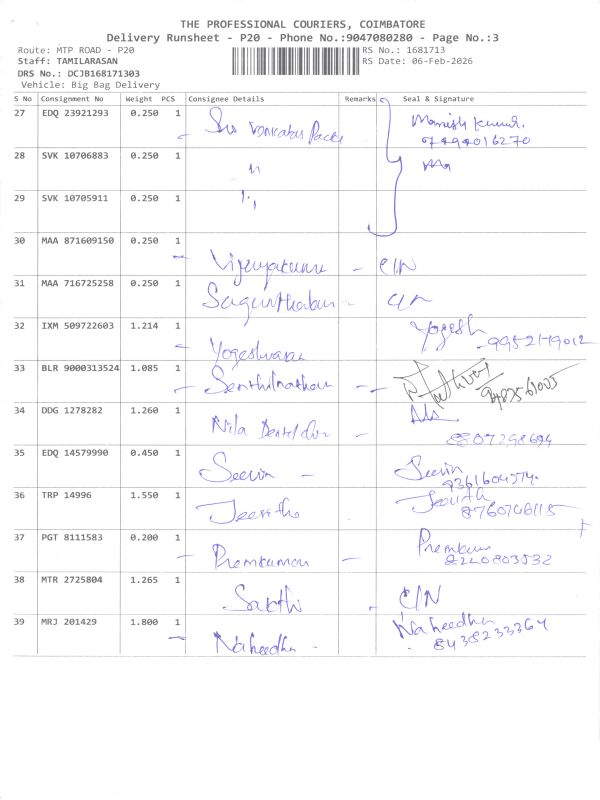 THE PROFESSIONAL COURIERS, COIMBATORE
Delivery Runsheet - P20 - Phone No.:9047080280 - Page No.:3
Route: MTP ROAD - P20 RS No.: 1681713
Staff: TAMILARASAN RS Date: 06-Feb-2026
DRS No.: DCJB168171303
Vehicle: Big Bag Delivery
S No Consignment No Weight PCS Consignee Details Remarks Seal & Signature
27 EDQ 23921293 0.250 1 Manish Kumar
28 SVK 10706883 0.250 1 "
29 SVK 10705911 0.250 1 "
30 MAA 871609150 0.250 1 Vijeyakumar - C/N
31 MAA 716725258 0.250 1 -
32 IXM 509722603 1.214 1 Yogeshwaran Yogesh
33 BLR 9000313524 1.085 1 Senthilnathan -
34 DDG 1278282 1.260 1 Nila Dental
8807298694
35 EDQ 14579990 0.450 1 -
36 TRP 14996 1.550 1
37 PGT 8111583 0.200 1 Premkumar -
8220803532
38 MTR 2725804 1.265 1 Sakthi - C/N
39 MRJ 201429 1.800 1 Naheedha - Naheedha
8438233364